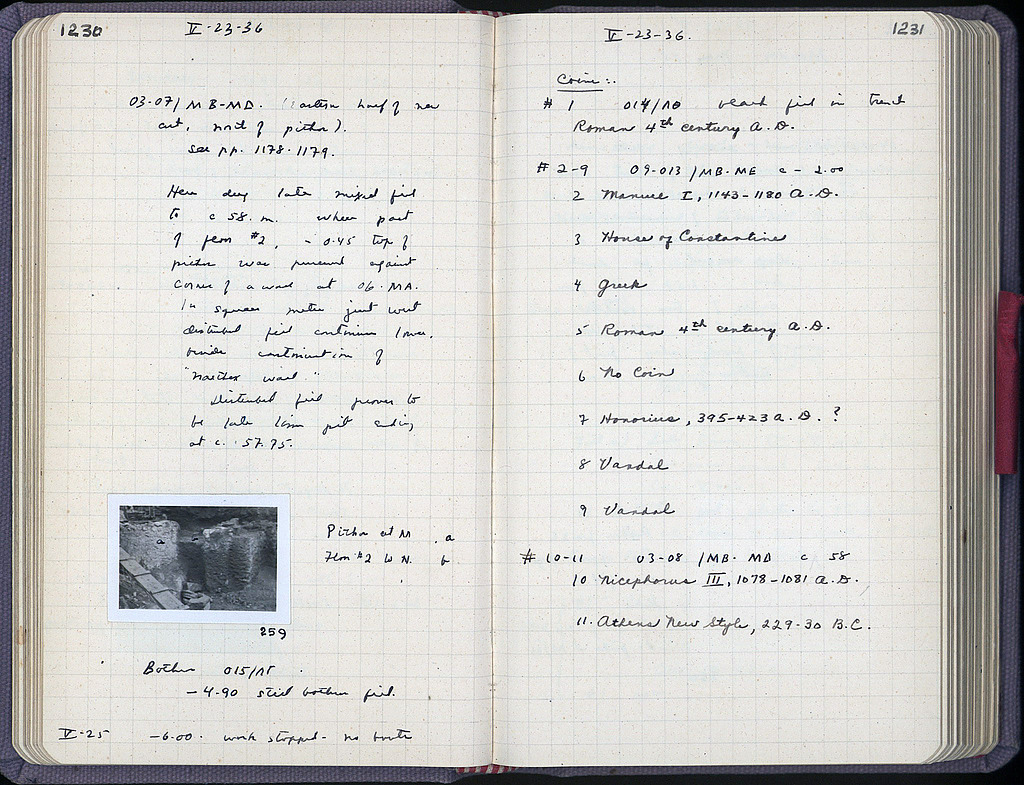 1230
V-23-36
03-07/MB-MD. (Eastern half of new
cut, north of pithos).
see pp. 1178-1179.
Here dug late mixed fill
to c 58. m. where part
of floor #2, -0.45 top of
pithos was preserved against
corner of a wall at 06-MA.
In square meter just west
disturbed fill continues lower,
beside continuation of
wall."
Disturbed fill proves to
be late pit ending
at c. 57.75.
Pithos at M . a
Floor #2 W N. b
259
Bothros 015/
-4.90 still bothros fill.
V-25 -6.00. work stopped - no
1231
V-23-36.
Coins:.
# 1 014/ fill in trench
Roman 4th century A.D.
# 2-9 09-013/MB-ME c - 2.00
2 Manuel I, 1143-1180 A.D.
3 House of Constantine
4 Greek
5 Roman 4th century A.D.
6 No Coin
7 Honorius, 395-423 A.D. ?
8 Vandal
9 Vandal
# 10-11 03-08/MB-MD c 58
10 Nicephorus III, 1078-1081 A.D.
11. Athens New Style, 229-30 B.C.